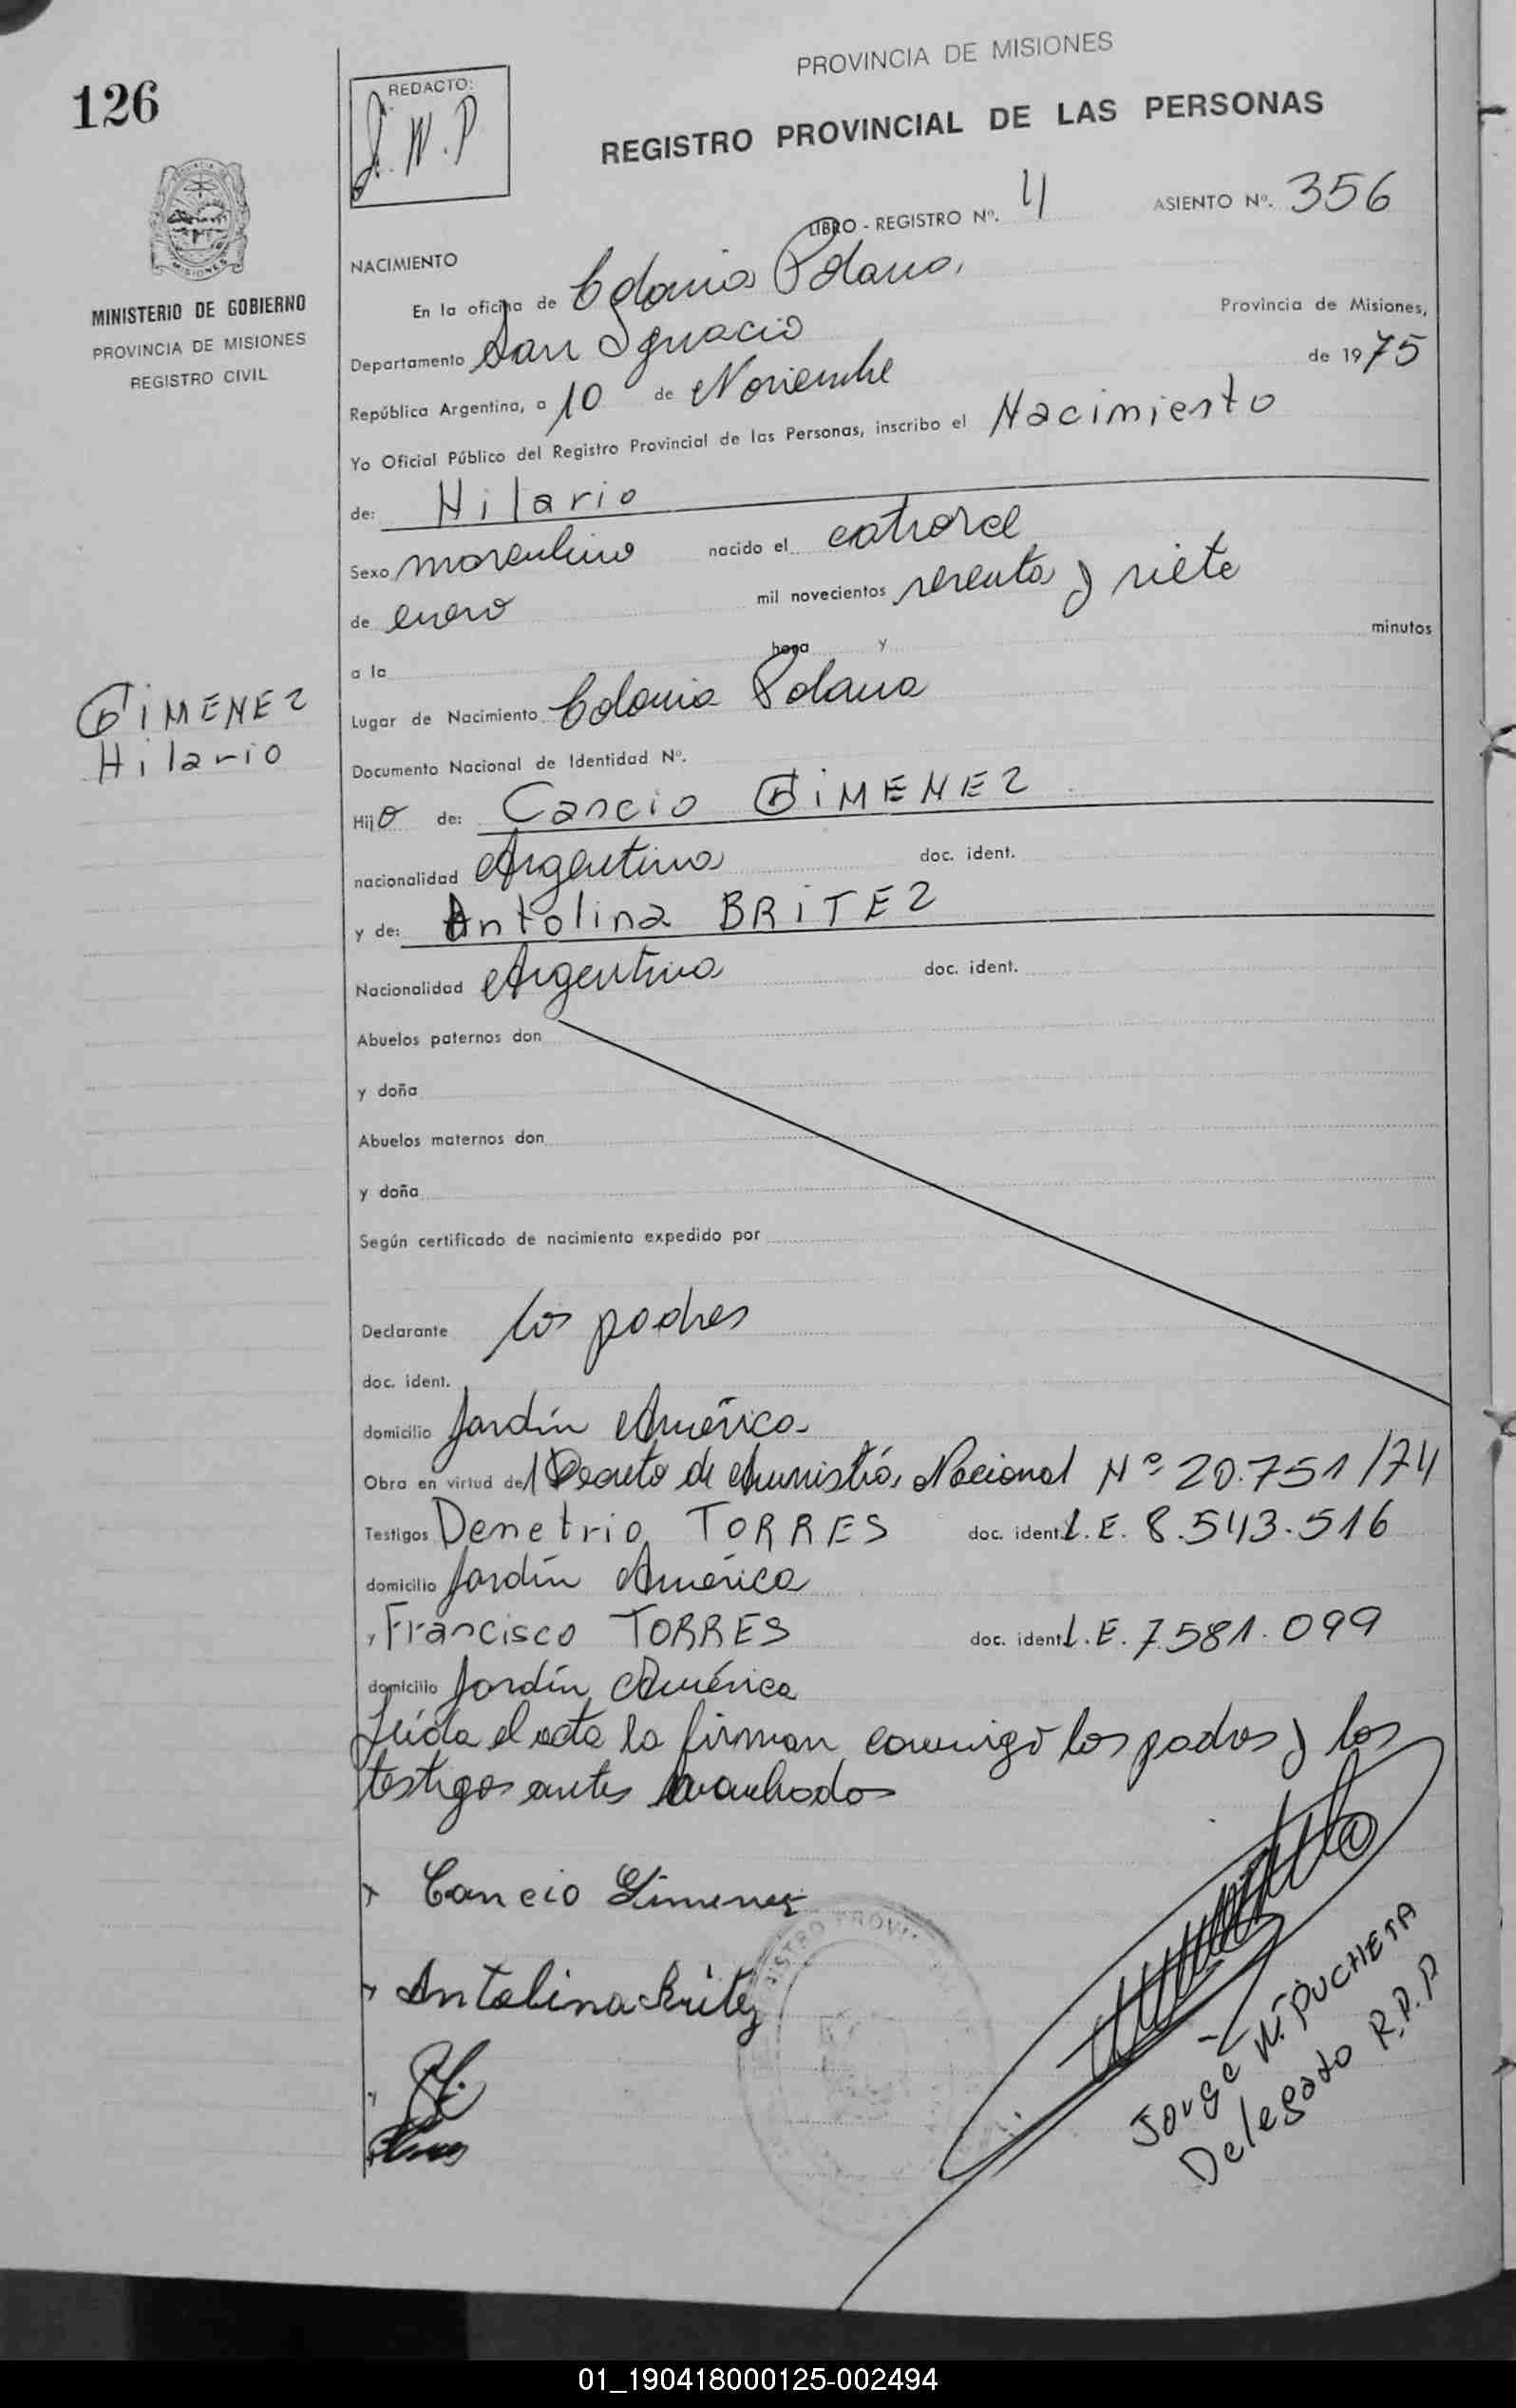 126
REDACTO:
J. N. P
PROVINCIA DE MISIONES
REGISTRO PROVINCIAL DE LAS PERSONAS
LIBRO - REGISTRO Nº. 4 ASIENTO Nº. 356
MINISTERIO DE GOBIERNO
PROVINCIA DE MISIONES
REGISTRO CIVIL
NACIMIENTO
En la oficina de Colonia Polana,
Departamento San Ignacio Provincia de Misiones,
República Argentina, a 10 de Noviembre de 1975
Yo Oficial Público del Registro Provincial de las Personas, inscribo el Nacimiento
de: Hilario
Sexo masculino nacido el catorce
de enero mil novecientos sesenta y siete
a la hora y minutos
GiMENEZ
Hilario
Lugar de Nacimiento Colonia Polana
Documento Nacional de Identidad Nº.
Hijo de: Cancio GiMENEZ
nacionalidad Argentina doc. ident.
y de: Antolina BRiTEZ
Nacionalidad Argentina doc. ident.
Abuelos paternos don
y doña
Abuelos maternos don
y doña
Según certificado de nacimiento expedido por
Declarante los padres
doc. ident.
domicilio Jardín América
Obra en virtud del Decreto de Amnistía Nacional Nº 20.751/74
Testigos Demetrio TORRES doc. ident. L.E. 8.543.516
domicilio Jardín América
y Francisco TORRES doc. ident. L.E. 7.581.099
domicilio Jardín América
Leída el acta la firman conmigo los padres y los
testigos antes nombrados
Cancio Gimenez
Antolina Britez
REGISTRO PROVI
Jorge N. PUCHETA
Delegado R.P.P
01_190418000125-002494